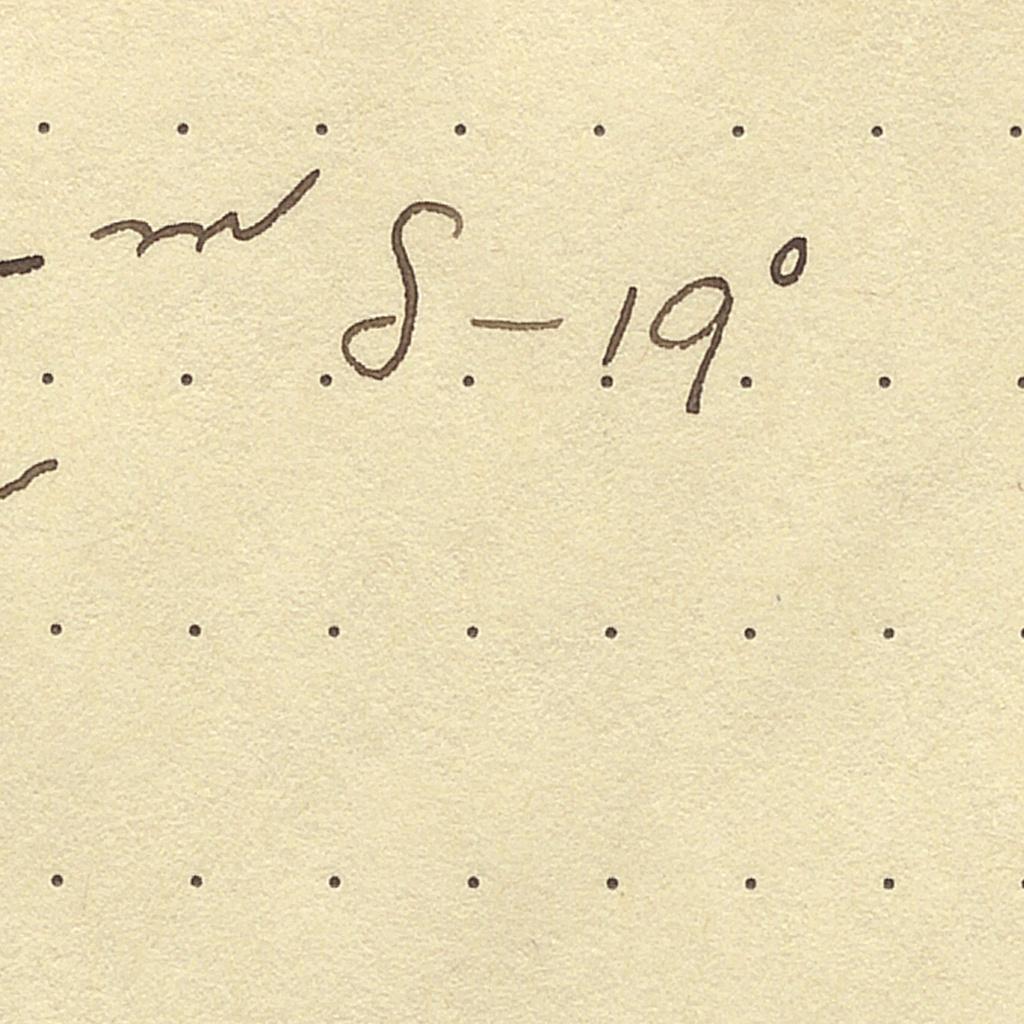 m δ – 19°